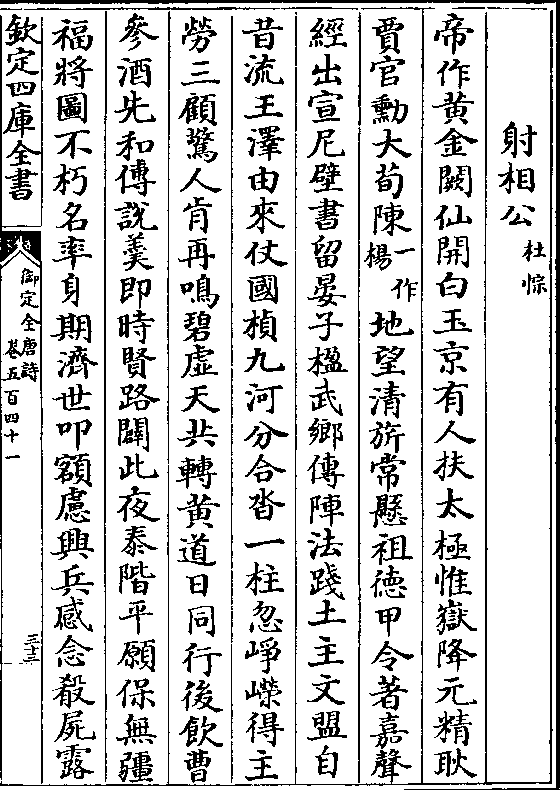 射相公杜悰
帝作黄金闕仙開白玉京有人扶太極惟嶽降元精耿
賈官勲大荀陳一作楊地望清旂常懸祖徳甲令著嘉聲
經出宣尼壁書留晏子楹武鄉傳陣法踐土主文盟自
昔流王澤由來仗國楨九河分合沓一柱忽崢嶸得主
勞三顧驚人肯再鳴碧虛天共轉黄道日同行後飲曹
參酒先和傅說羮即時賢路闢此夜泰階平願保無疆
福將圖不朽名率身期濟世叩額慮興兵感念殽屍露
欽定四庫全書
御定全唐詩
卷五百四十一
三十三